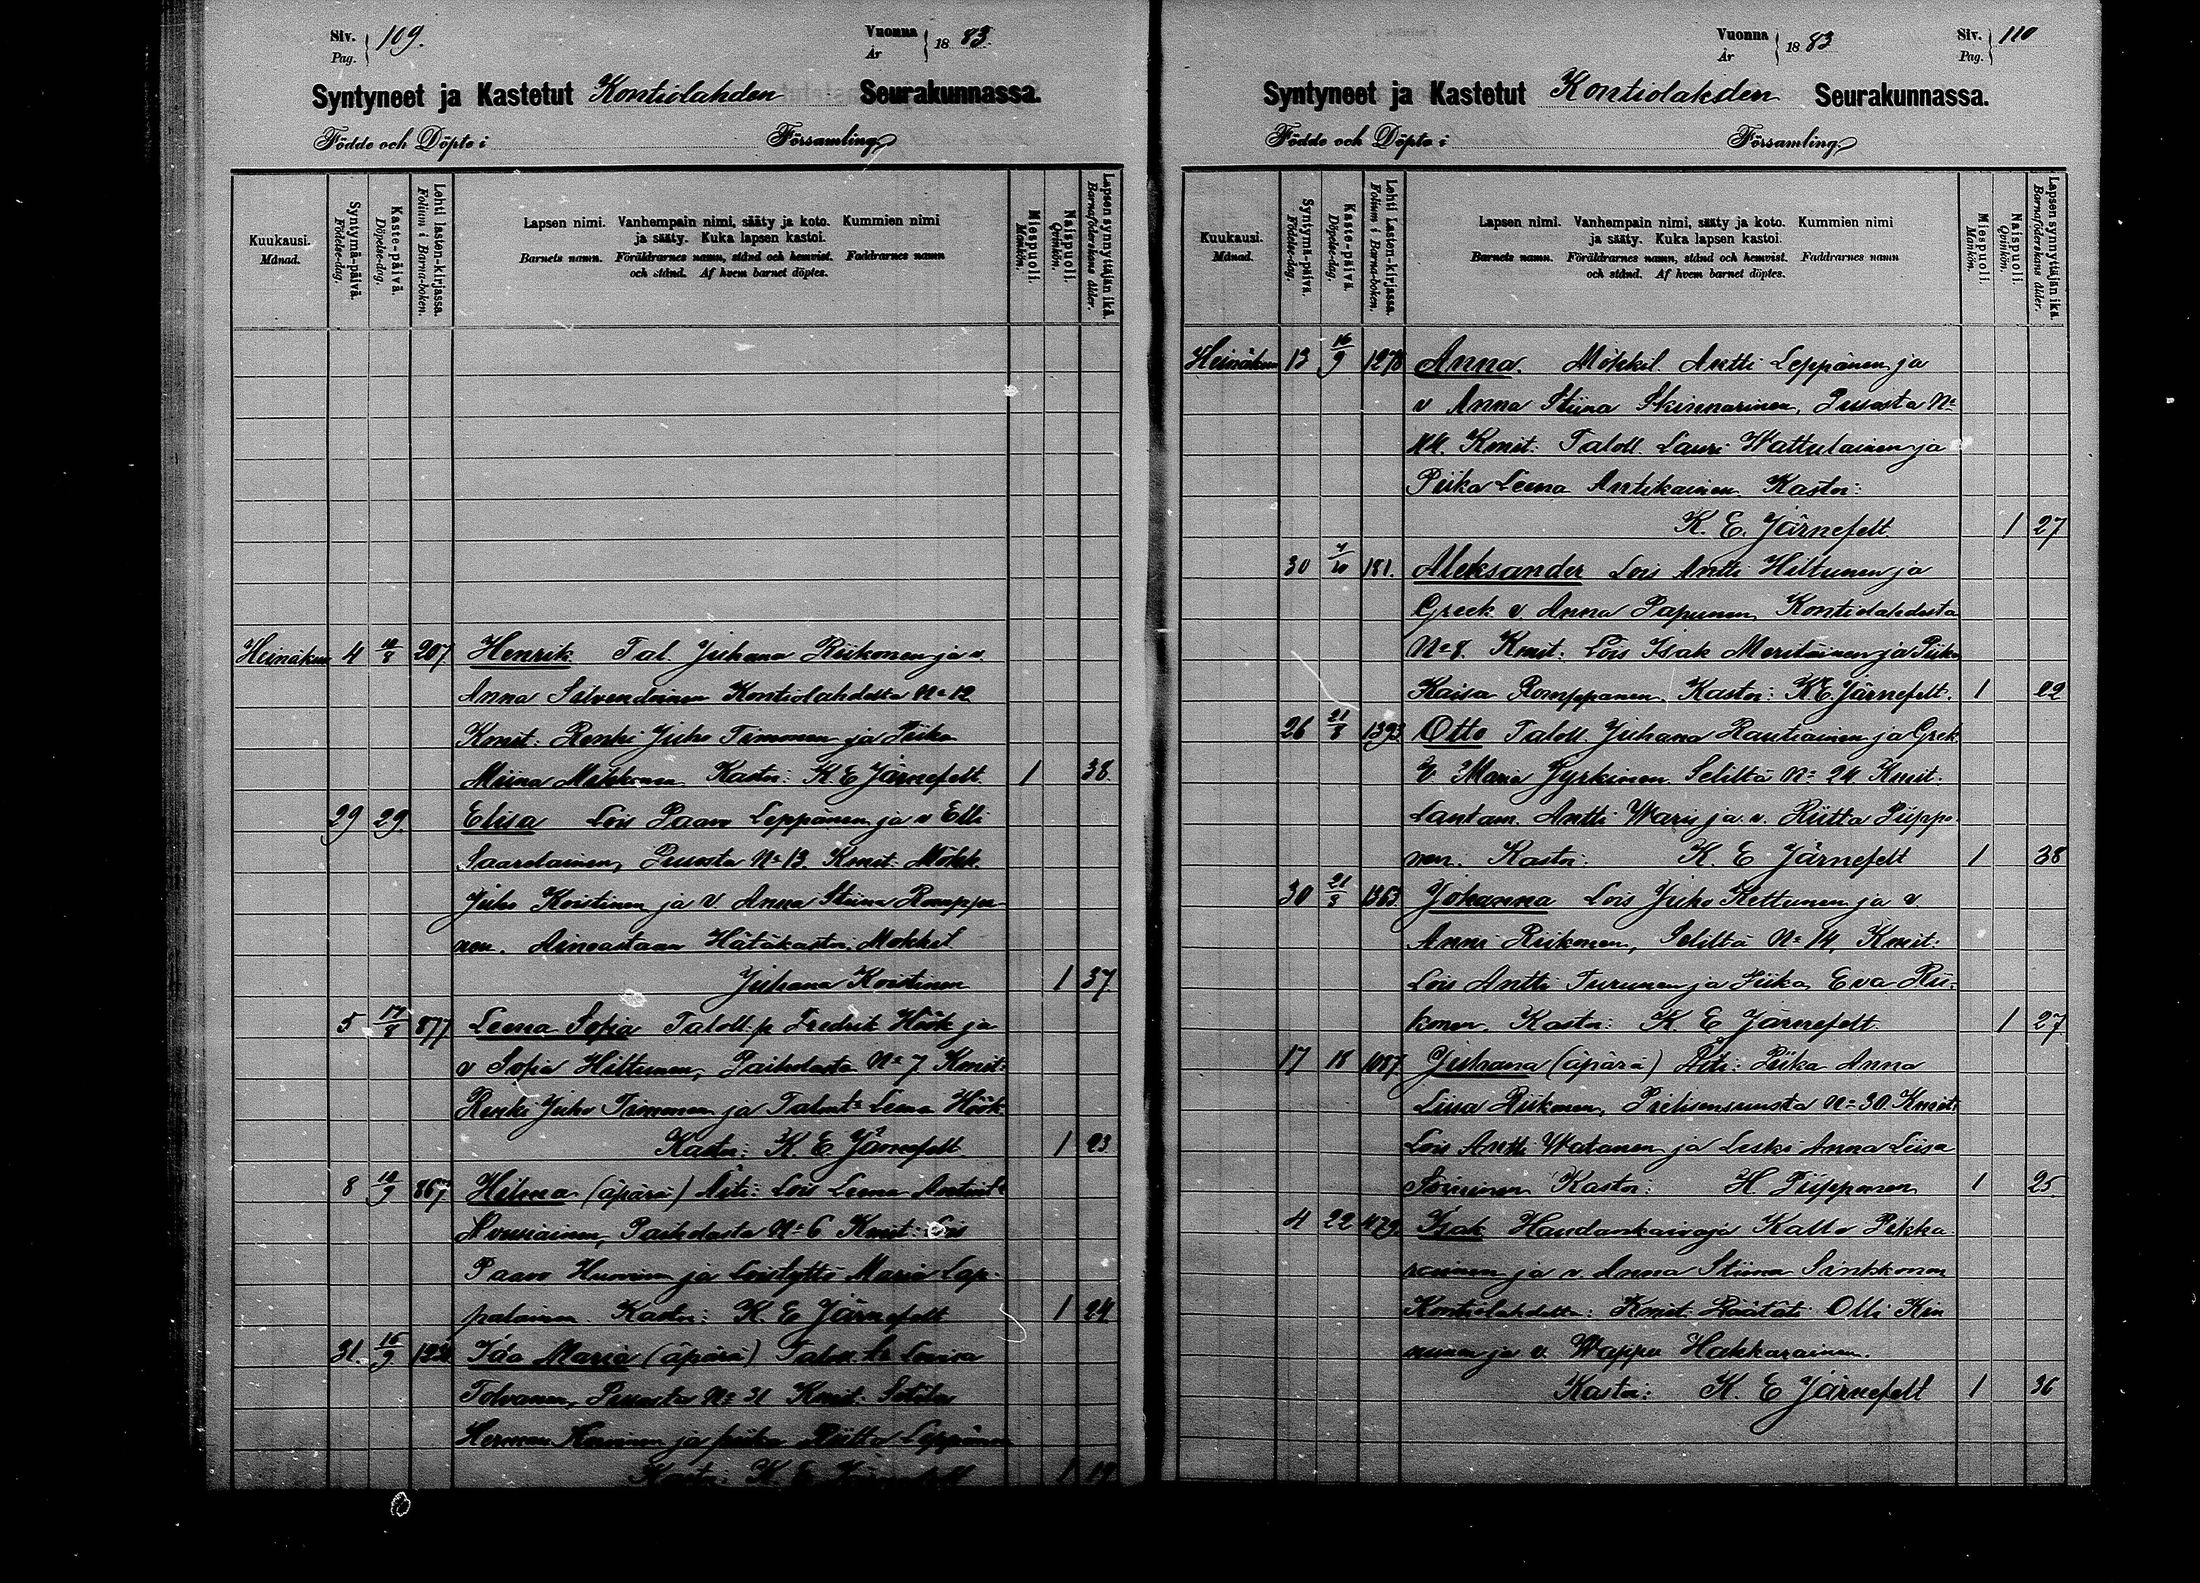 Siv. 109. Vuonna 1883.
Pag. År
Syntyneet ja Kastetut Kontiolahden Seurakunnassa.
Födde och Döpte i Församling
Kuukausi.
Månad.
Syntymä-päivä.
Födelse-dag.
Kaste-päivä.
Döpelse-dag.
Lehti lasten-kirjassa.
Folium i Barna-boken.
Lapsen nimi. Vanhempain nimi, sääty ja koto. Kummien nimi
ja sääty. Kuka lapsen kastoi.
Barnets namn. Föräldrarnes namn, stånd och hemvist. Faddrarnes namn
och stånd. Af hvem barnet döptes.
Miespuoli.
Mankön.
Naispuoli.
Qvinkön.
Lapsen synnyttäjän ikä.
Barnaföderskans ålder.
Heinäkuu 4 207 Henrik Tal. Juhana Riikonen ja v.
Anna Kontiolahdesta No 12
Kmit: Renki Juho Timonen ja Piika
Miina Kastoi: K. E. Järnefelt 1 38.
29 29. Elisa Lois Paavo Leppänen ja v Elli
Saarelainen, No 13. Kmit: Mökk.
Juho Koistinen ja v. Anna Stiina Romppa-
nen. Ainoastaan Hätäkastoi Mökkil
Juhana Koistinen 1 37.
5 17/8 877 Leena Sofia Taloll. p Fredrik Höök ja
v Sofia Hiltunen, Paiholasta No 7 Kmit:
Renki Juho Timonen ja Leena Höök
Kastoi: K. E. Järnefelt 1 23
8 867 Hilma (äpärä) Äiti: Lois Leena
Paiholasta No 6 Kmit: Lois
Paavo ja Loistyttö Maria Lap-
palainen Kastoi: K. E. Järnefelt 1 24
31. 16/9 Ida Maria (äpärä) Taloll. Lovisa
Tolvanen, No 31 Kmit:
Herman ja piika Riitta Leppänen
Kastoi: K. E. Järnefelt 1
Vuonna 1883 Siv. 110
År Pag.
Syntyneet ja Kastetut Kontiolahden Seurakunnassa.
Födde och Döpte i Församling
Kuukausi.
Månad.
Syntymä-päivä.
Födelse-dag.
Kaste-päivä.
Döpelse-dag.
Lehti Lasten-kirjassa.
Folium i Barna-boken.
Lapsen nimi. Vanhempain nimi, sääty ja koto. Kummien nimi
ja sääty. Kuka lapsen kastoi.
Barnets namn. Föräldrarnes namn, stånd och hemvist. Faddrarnes namn
och stånd. Af hvem barnet döptes.
Miespuoli.
Mankön.
Naispuoli.
Qvinkön.
Lapsen synnyttäjän ikä.
Barnaföderskans ålder.
Heinäkuu 13 16/9 1278 Anna. Mökkil. Antti Leppänen ja
v Anna Stiina Skinnarinen, No
44. Kmit: Taloll. Lauri Wattulainen ja
Piika Leena Antikainen. Kastoi:
K. E. Järnefelt. 1 27
30 181. Aleksander Lois Antti Hiltunen ja
Greek. v. Anna Papunen, Kontiolahdesta
No 8. Kmit: Lois Isak Meriläinen ja Piika
Kaisa Romppanen. Kastoi: K. E. Järnefelt. 1
26 21/8 1393 Otto Taloll. Juhana Rautiainen ja Grek.
V. Maria Jyrkinen Seliltä No 24 Kmit.
Lautam. Antti Waris ja v. Riitta Piippo-
nen. Kastoi: K. E Järnefelt 1 38
30 1363 Johanna Lois Juho Kettunen ja v
Anni Riikonen, Seliltä No 14, Kmit:
Lois Antti Turunen ja Piika Eva Rii-
konen. Kastoi: K E Järnefelt. 1 27
17 18 1087 Juhana (äpärä) Äiti: Piika Anna
Liisa Riikonen, No 30. Kmit:
Lois Antti Watanen ja Leski Anna Liisa
Soininen Kastoi: H. Piipponen 1 25
4 22 479. Isak Haudankaivaja Kalle Pikka-
rainen ja v Anna Stiina Sinkkonen
Kontiolahdesta: Kmit. Räätäli Olli Kin
nunen ja v. Wappu Hakkarainen.
Kastoi: K. E Järnefelt 1 36